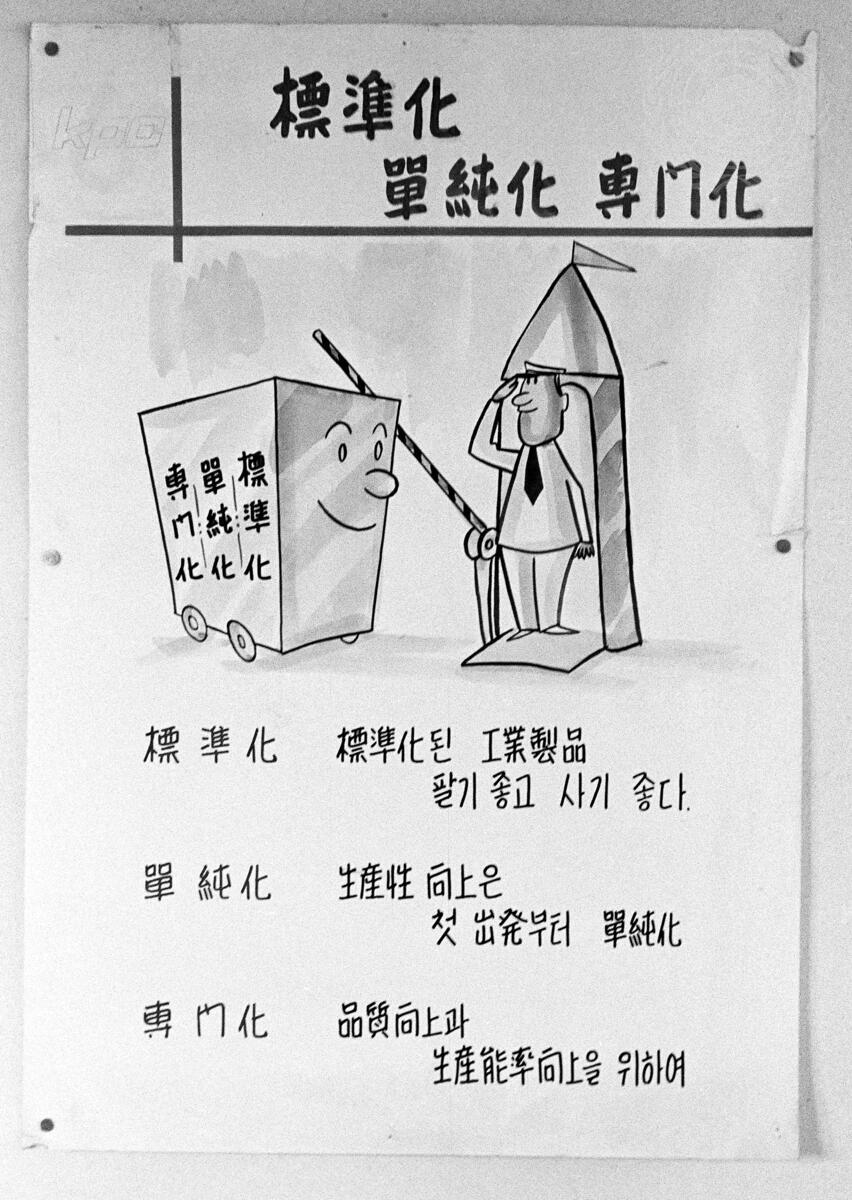 kpc
標準化
單純化 専門化
標準化
單純化
専門化
標準化 標準化된 工業製品
팔기 좋고 사기 좋다.
單純化 生産性 向上은
첫 出発부터 單純化
専門化 品質向上과
生産能率向上을 위하여